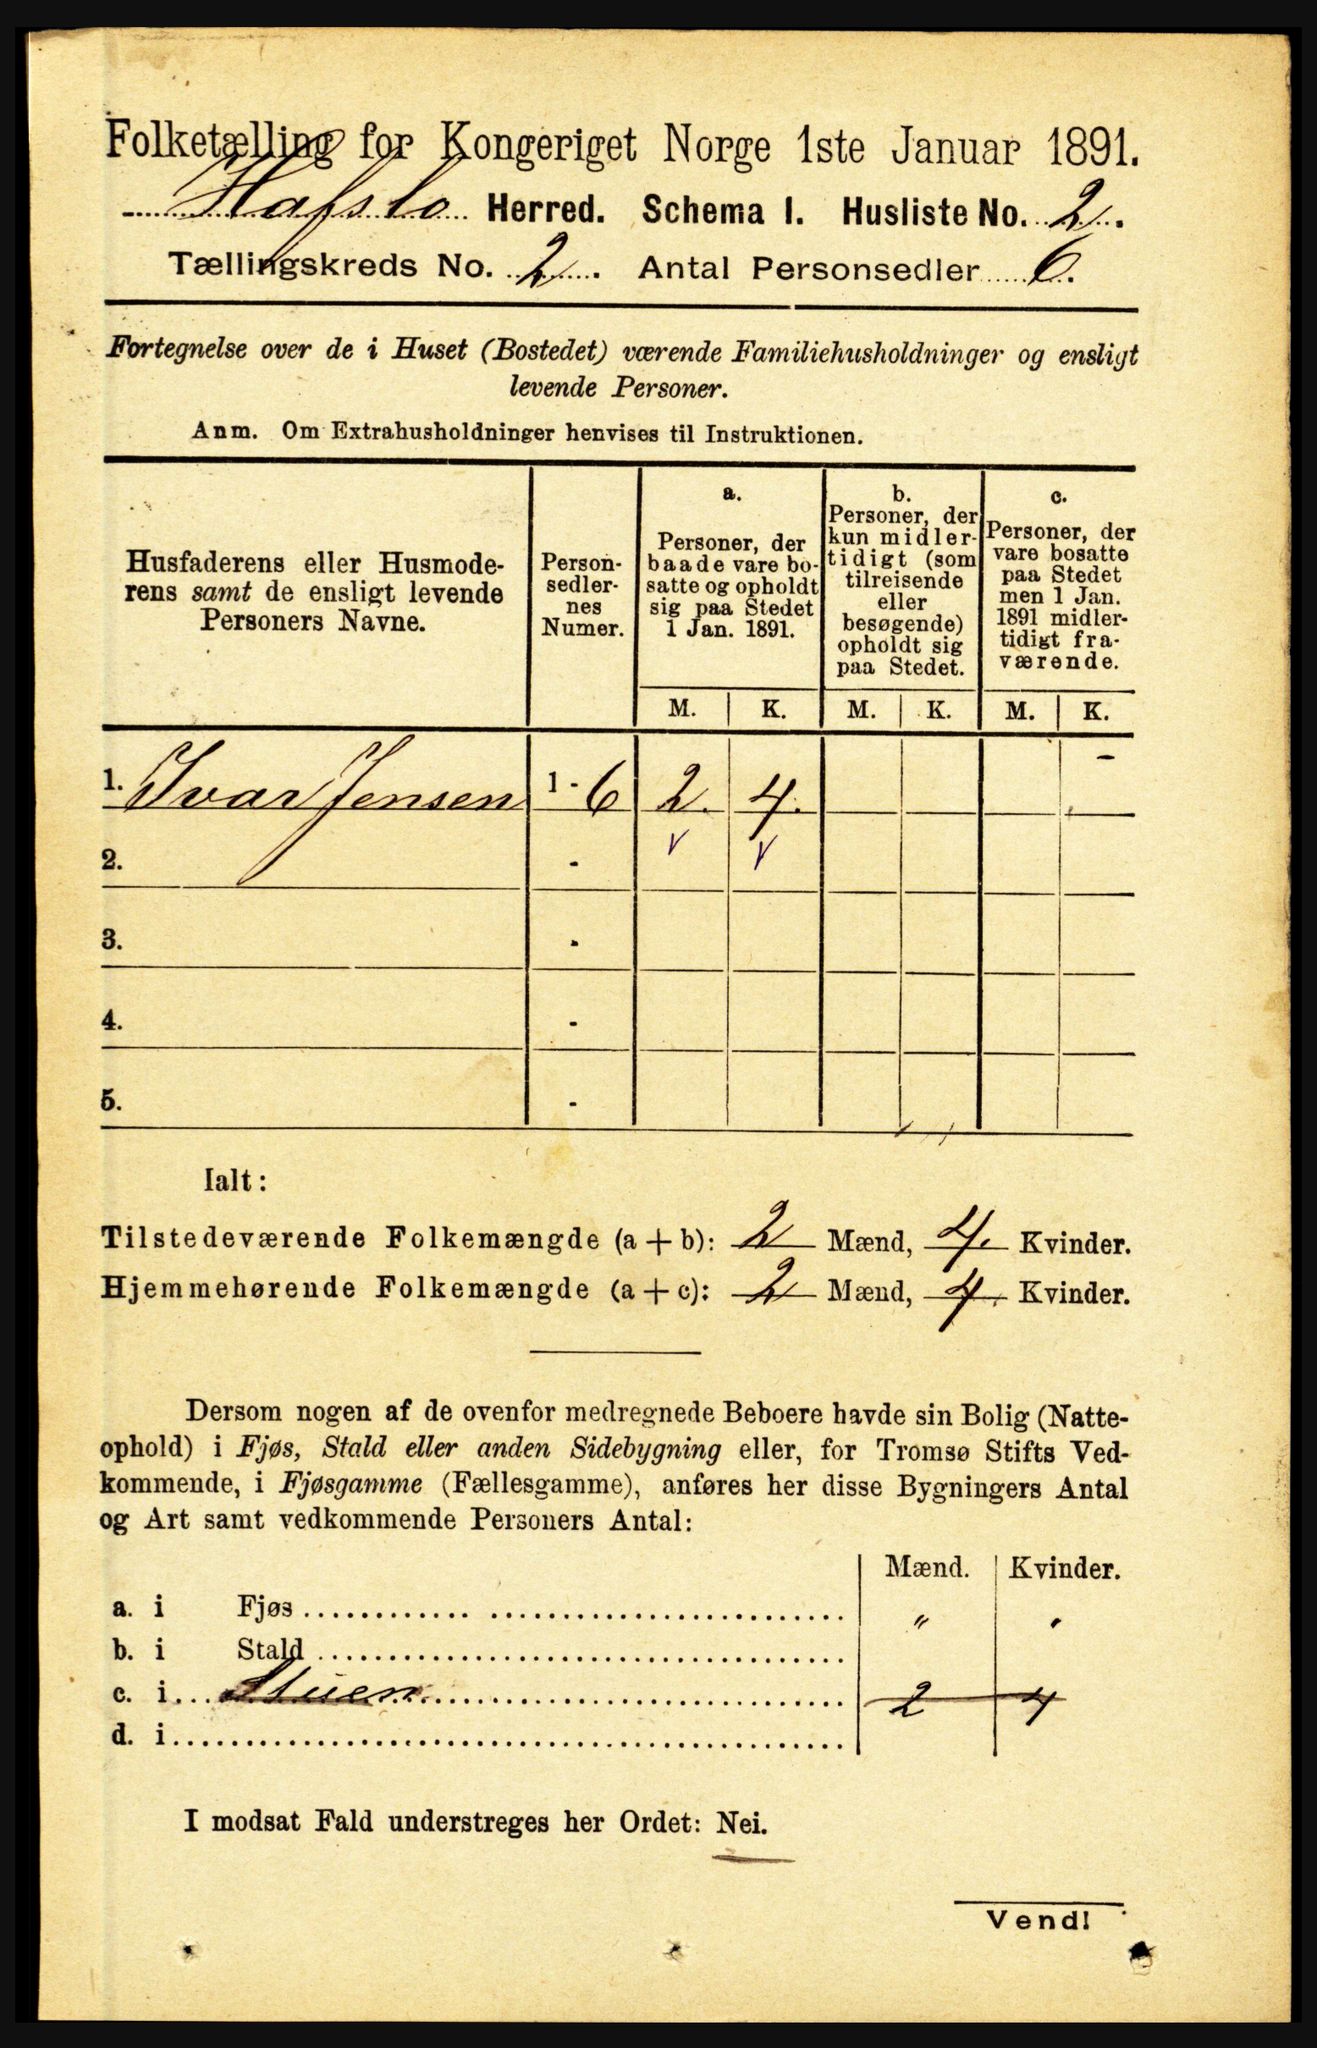 Folketælling for Kongeriget Norge 1ste Januar 1891.
Hafslo Herred. Schema I. Husliste No. 2.
Tællingskreds No. 2. Antal Personsedler 6.
Fortegnelse over de i Huset (Bostedet) værende Familiehusholdninger og ensligt
levende Personer.
Anm. Om Extrahusholdninger henvises til Instruktionen.
Husfaderens eller Husmode-
rens samt de ensligt levende
Personers Navne.
Person-
sedler-
nes
Numer.
a.
Personer, der
baade vare bo-
satte og opholdt
sig paa Stedet
1 Jan. 1891.
b.
Personer, der
kun midler-
tidigt (som
tilreisende
eller
besøgende)
opholdt sig
paa Stedet.
c.
Personer, der
vare bosatte
paa Stedet
men 1 Jan.
1891 midler-
tidigt fra-
værende.
M. K. M. K. M. K.
1. Ivar Jensen 1 - 6 2. 4.
2. -
3. -
4. -
5. -
Ialt:
Tilstedeværende Folkemængde (a + b): 2 Mænd, 4. Kvinder.
Hjemmehørende Folkemængde (a + c): 2 Mænd, 4. Kvinder.
Dersom nogen af de ovenfor medregnede Beboere havde sin Bolig (Natte-
ophold) i Fjøs, Stald eller anden Sidebygning eller, for Tromsø Stifts Ved-
kommende, i Fjøsgamme (Fællesgamme), anføres her disse Bygningers Antal
og Art samt vedkommende Personers Antal:
Mænd. Kvinder.
a. i Fjøs "
b. i Stald
c. i Stuen 2 4
d. i
I modsat Fald understreges her Ordet: Nei.
Vend!